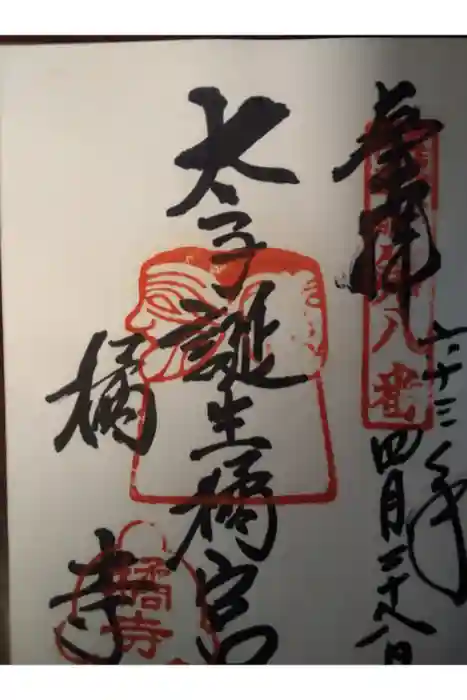 奉拝
八番
六十三年
四月二十八日
太子誕生橘宮
橘寺
橘寺